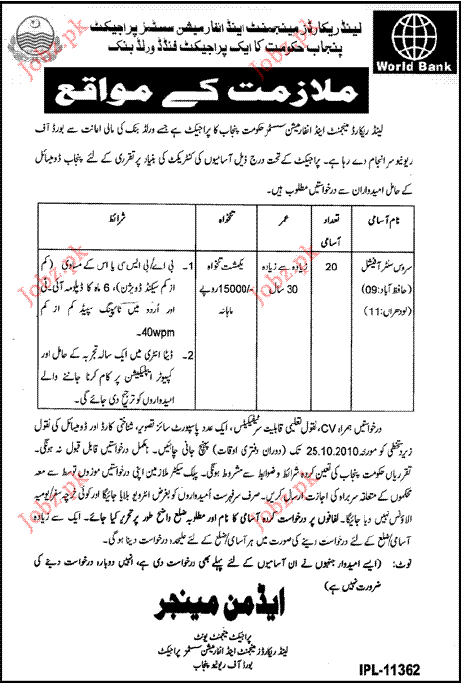 لینڈ ریکارڈز مینجمنٹ اینڈ انفارمیشن سسٹمز پراجیکٹ
پنجاب حکومت کا ایک پراجیکٹ فنڈڈ ورلڈ بنک
World Bank
ملازمت کے مواقع
لینڈ ریکارڈ مینجمنٹ اینڈ انفارمیشن سسٹمز حکومت پنجاب کا پراجیکٹ ہے جسے ورلڈ بنک کی مالی اعانت سے بورڈ آف
ریونیو سر انجام دے رہا ہے۔ پراجیکٹ کے تحت درج ذیل آسامیوں کی کنٹریکٹ کی بنیاد پر تقرری کے لئے پنجاب ڈومیسائل
کے حامل امیدواران سے درخواستیں مطلوب ہیں۔
نام آسامی
تعداد آسامی
عمر
تنخواہ
شرائط
سروس سنٹر آفیشل
(حافظ آباد:09)
(لودھراں:11)
20
زیادہ سے زیادہ
30 سال
یکمشت تنخواہ
15000/- روپے
ماہانہ
1- بی اے/بی ایس سی یا اس کے مساوی (کم
از کم سیکنڈ ڈویژن)، 6 ماہ کا ڈپلومہ آئی۔ٹی
اور اُردو میں ٹائپنگ سپیڈ کم از کم
40wpm۔
2- ڈیٹا انٹری میں ایک سالہ تجربہ کے حامل اور
کمپیوٹر ایپلیکیشن پر کام کرنا جاننے والے
امیدواروں کو ترجیح دی جائے گی۔
درخواستیں ہمراہ CV، نقول تعلیمی قابلیت سرٹیفکیٹس، ایک عدد پاسپورٹ سائز تصویر، شناختی کارڈ اور ڈومیسائل کی نقول
زیر دستخطی کو مورخہ 25.10.2010 تک (دوران دفتری اوقات) پہنچ جانی چاہئیں۔ نامکمل درخواستیں قابل قبول نہ ہونگی۔
تقرریاں حکومت پنجاب کی تعین کردہ شرائط و ضوابط سے مشروط ہونگی۔ پبلک سیکٹر ملازمین اپنی درخواستیں موزوں توسط سے معہ
محکموں کے متعلقہ سربراہ کی اجازت ارسال کریں۔ صرف سرفہرست امیدواروں کو بغرض انٹرویو بلایا جائیگا اور کوئی خرچہ سفر/یومیہ
الاؤنس نہیں دیا جائیگا۔ لفافوں پر درخواست کردہ آسامی کا نام اور مطلوبہ ضلع واضح طور پر تحریر کیا جائے۔ ایک سے زیادہ
آسامی/ضلع کے لئے درخواست دینے کی صورت میں ہر آسامی/ضلع کے لئے علیحدہ درخواست دینا ہوگی۔
نوٹ: (ایسے امیدوار جنہوں نے ان آسامیوں کے لئے پہلے بھی درخواست دی ہے، انہیں دوبارہ درخواست دینے کی
ضرورت نہیں ہے)
ایڈمن مینجر
پراجیکٹ مینجمنٹ یونٹ
لینڈ ریکارڈز مینجمنٹ اینڈ انفارمیشن سسٹمز پراجیکٹ
بورڈ آف ریونیو پنجاب
IPL-11362
Jobz.pk